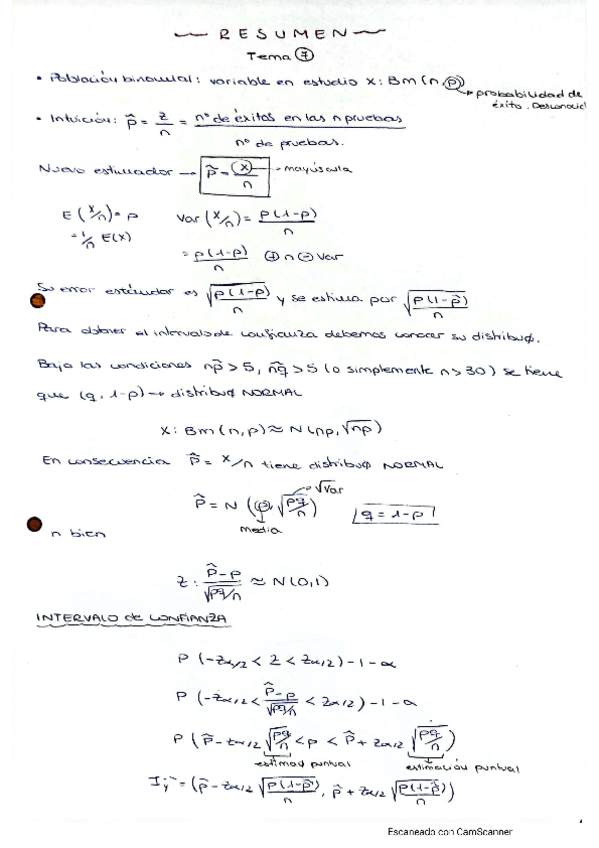 RESUMEN
Tema 7
• Población binomial: variable en estudio X: Bm (n, p) → probabilidad de
éxito. Desconocid
• Intuición: p̂ = z/n = nº de éxitos en las n pruebas / nº de pruebas.
Nuevo estimador → p̂ = X/n - mayúscula
E (X/n) = p Var (X/n) = p(1-p)/n
= 1/n E(X) = p(1-p)/n ⊕ n ⊖ Var
Su error estándar es √(p(1-p)/n) y se estima por √(p̂(1-p̂)/n)
Para obtener el intervalo de confianza debemos conocer su distribuø.
Bajo las condiciones np̂ > 5, nq̂ > 5 (o simplemente n > 30) se tiene
que (q, 1-p) → distribuø NORMAL
X: Bm (n, p) ≈ N (np, √np)
En consecuencia p̂ = X/n tiene distribuø NORMAL
√Var
p̂ = N (p, √(pq/n)) q = 1-p
media
n bien
Z: (p̂-p)/√(pq/n) ≈ N (0,1)
INTERVALO de CONFIANZA
P (-Zα/2 < Z < Zα/2) - 1 - α
P (-Zα/2 < (p̂-p)/√(pq/n) < Zα/2) - 1 - α
P (p̂ - Zα/2 √(pq/n) < p < p̂ + Zα/2 √(pq/n))
estimad puntual estimación puntual
= (p̂ - Zα/2 √(p̂(1-p̂)/n), p̂ + Zα/2 √(p̂(1-p̂)/n))
Escaneado con CamScanner